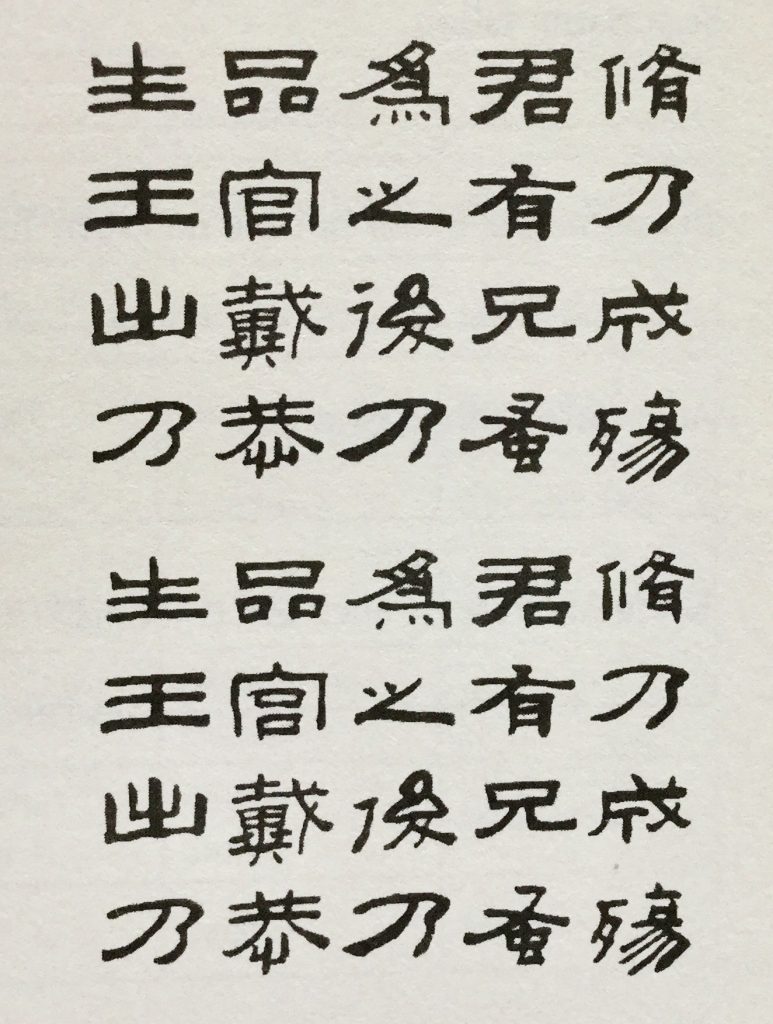 脩乃成殤
君有兄蚤
爲之後乃
品官戴恭
生王出乃
脩乃成殤
君有兄蚤
爲之後乃
品宮戴恭
生王出乃